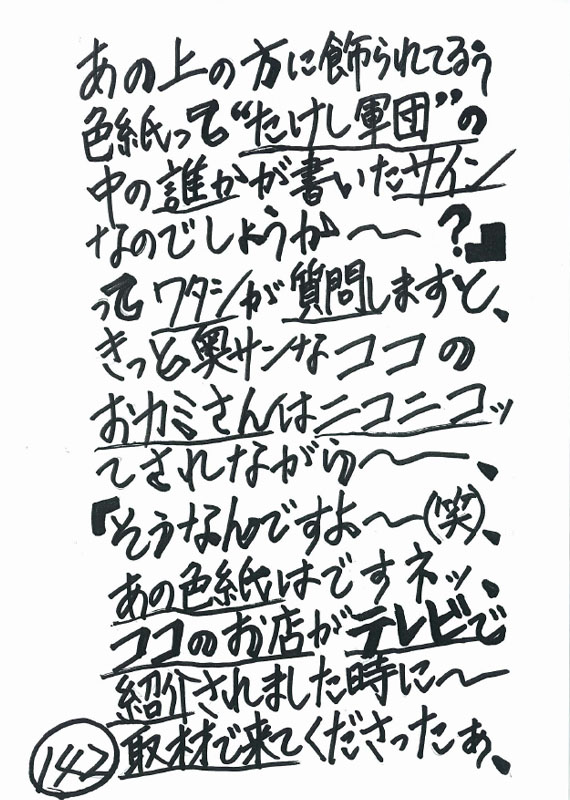 あの上の方に飾られてるぅ
色紙って“たけし軍団”の
中の誰かが書いたサイン
なのでしょうか〜？』
ってワタシが質問しますと、
きっと奥サンなココの
おカミさんはニコニコッ
てされながら〜、
『そうなんですよ〜(笑)、
あの色紙はですネッ、
ココのお店がテレビで
紹介されました時に〜
取材で来てくださったぁ、
142